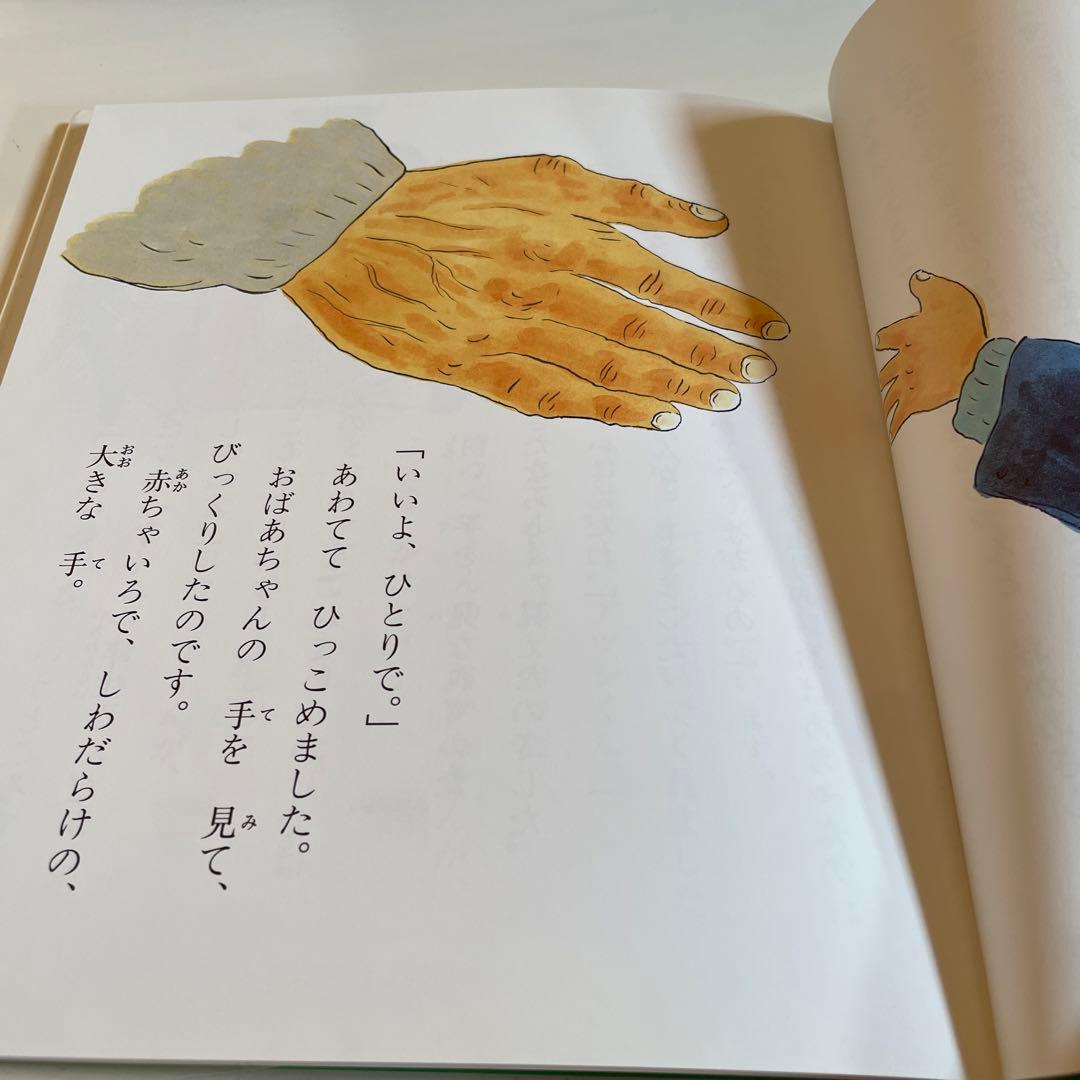 「いいよ、ひとりで。」
あわてて ひっこめました。
おばあちゃんの 手を 見て、
びっくりしたのです。
赤ちゃいろで、しわだらけの、
大きな 手。